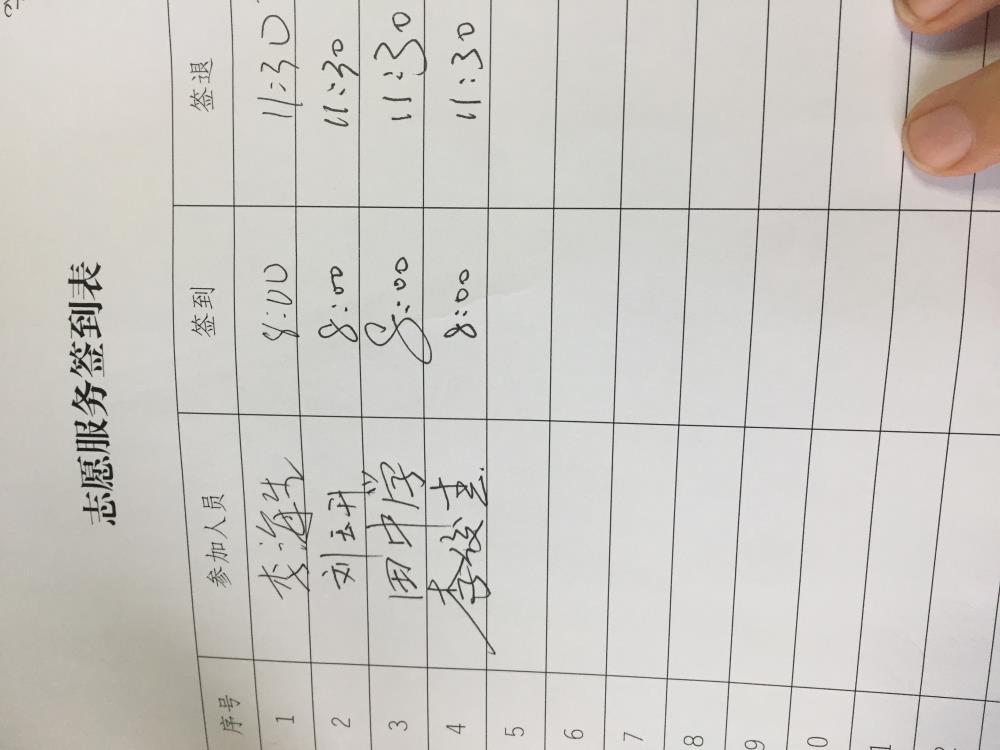 志愿服务签到表
序号 参加人员 签到 签退
1 李海生 8:00 11:30
2 刘玉升 8:00 11:30
3 田中学 8:00 11:30
4 李俊杰 8:00 11:30
5
6
7
8
9